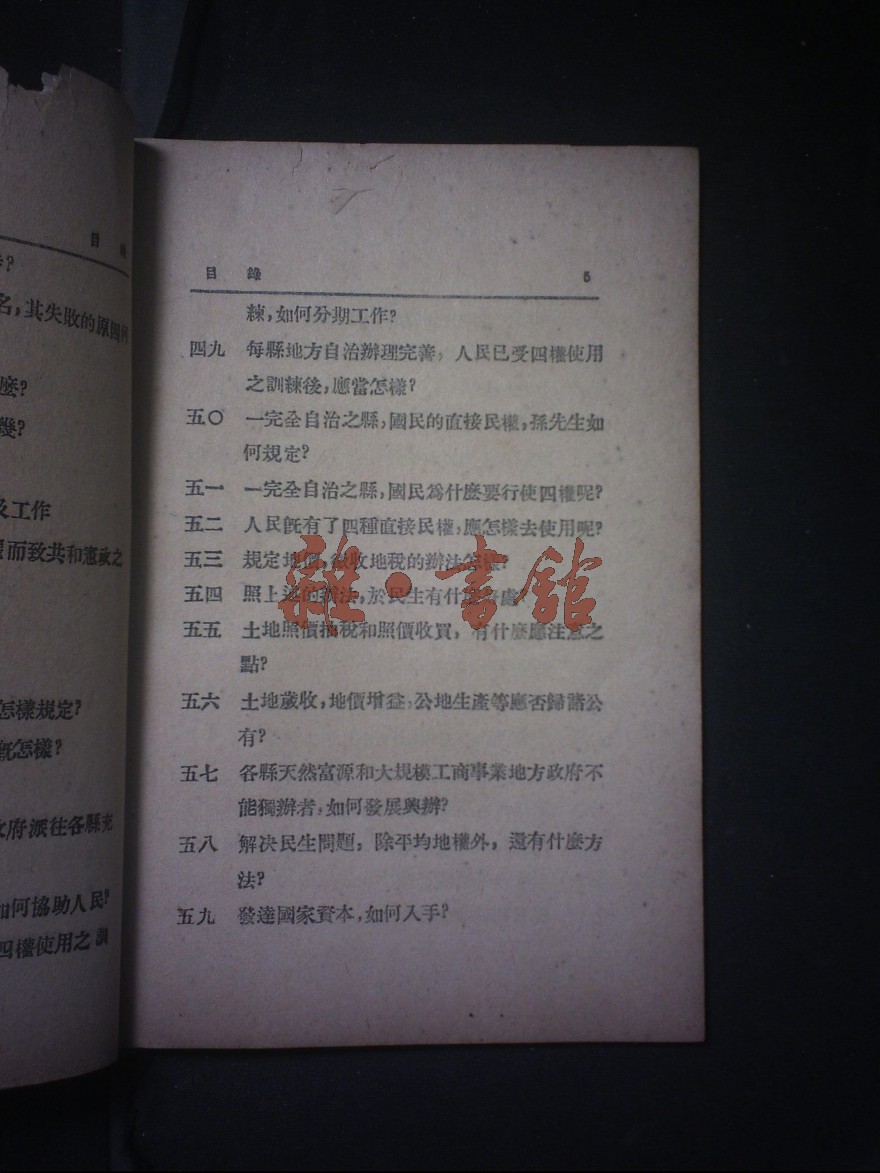 名,其失敗的原因何
麼?
幾?
及工作
而致共和憲政之
怎樣規定?
旣怎樣?
府派往各縣充
如何協助人民?
四權使用之訓
目錄 5
練,如何分期工作?
四九 每縣地方自治辦理完善,人民已受四權使用
之訓練後,應當怎樣?
五〇 一完全自治之縣,國民的直接民權,孫先生如
何規定?
五一 一完全自治之縣,國民爲什麼要行使四權呢?
五二 人民旣有了四種直接民權,應怎樣去使用呢?
五三 規定地價,徵收地稅的辦法怎樣?
五四 照上述的辦法,於民生有什處?
五五 土地照價抽稅和照價收買,有什麼應注意之
點?
五六 土地歲收,地價增益,公地生產等應否歸諸公
有?
五七 各縣天然富源和大規模工商事業地方政府不
能獨辦者,如何發展興辦?
五八 解决民生問題,除平均地權外,還有什麼方
法?
五九 發達國家資本,如何入手?
雜·書館